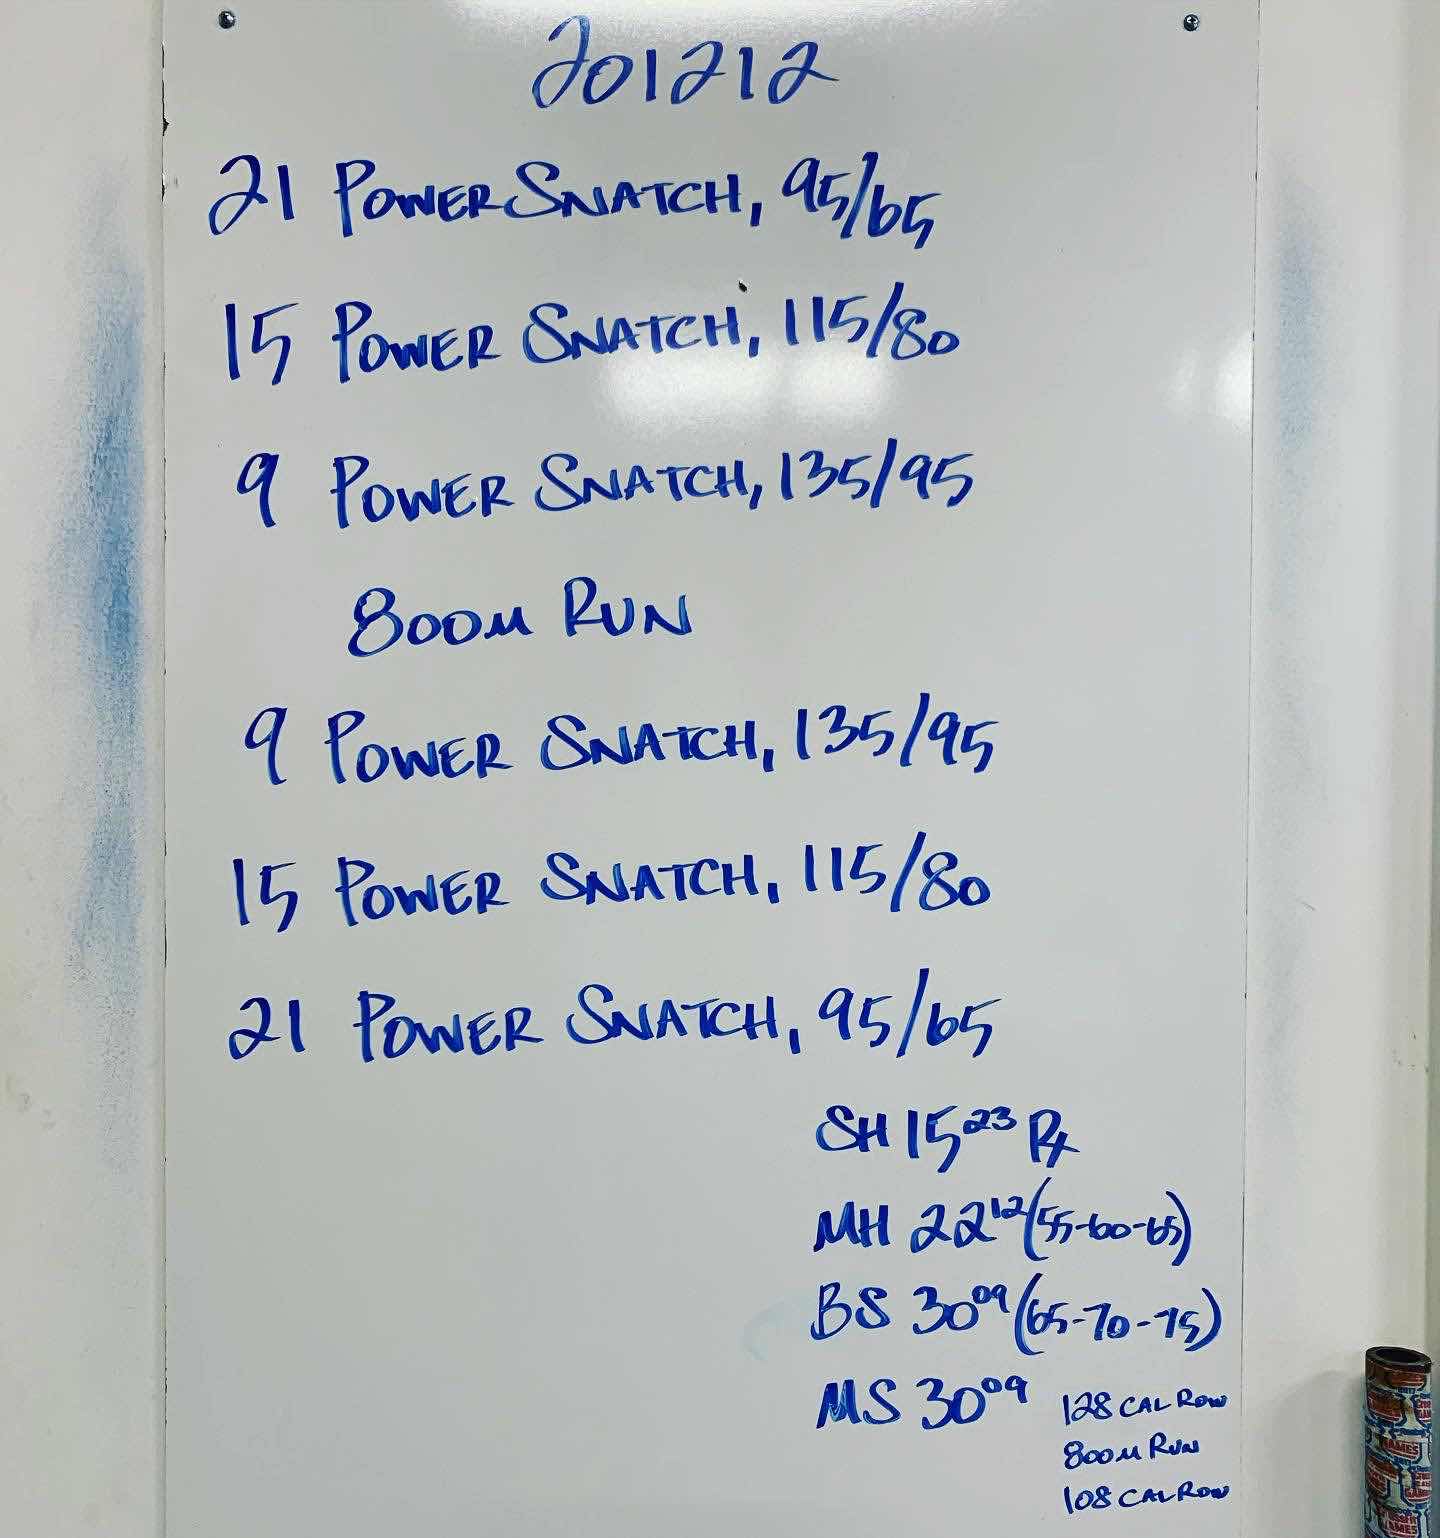 201212
21 POWER SNATCH, 95/65
15 POWER SNATCH, 115/80
9 POWER SNATCH, 135/95
800M RUN
9 POWER SNATCH, 135/95
15 POWER SNATCH, 115/80
21 POWER SNATCH, 95/65
SH 15 23 Rx
MH 22 12 (55-60-65)
BS 30 09 (65-70-75)
MS 30 09 128 CAL ROW
800M RUN
108 CAL ROW
GAMES